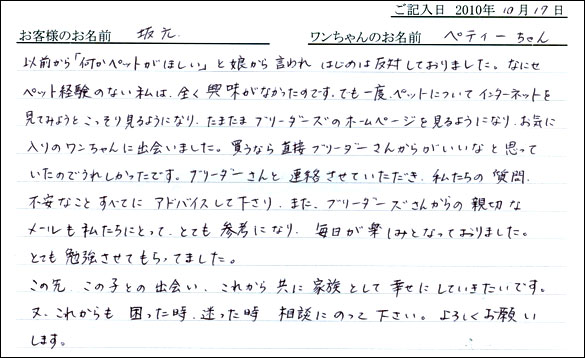 ご記入日 2010年 10月 17日
お客様のお名前 坂元 ワンちゃんのお名前 ペティーちゃん
以前から「何かペットがほしい」と娘から言われ はじめは反対しておりました。なにせ
ペット経験のない私は、全く興味がなかったのです。でも一度、ペットについてインターネットを
見てみようとこっそり見るようになり、たまたまブリーダーズのホームページを見るようになり、お気に
入りのワンちゃんに出会いました。買うなら直接ブリーダーさんからがいいなと思って
いたのでうれしかったです。ブリーダーさんと連絡させていただき、私たちの質問、
不安なことすべてにアドバイスして下さり、また、ブリーダーズさんからの親切な
メールも私たちにとって、とても参考になり、毎日が楽しみとなっておりました。
とても勉強させてもらってました。
この先、この子との出会い、これから共に家族として幸せにしていきたいです。
又、これからも困った時、迷った時 相談にのって下さい。よろしくお願い
します。